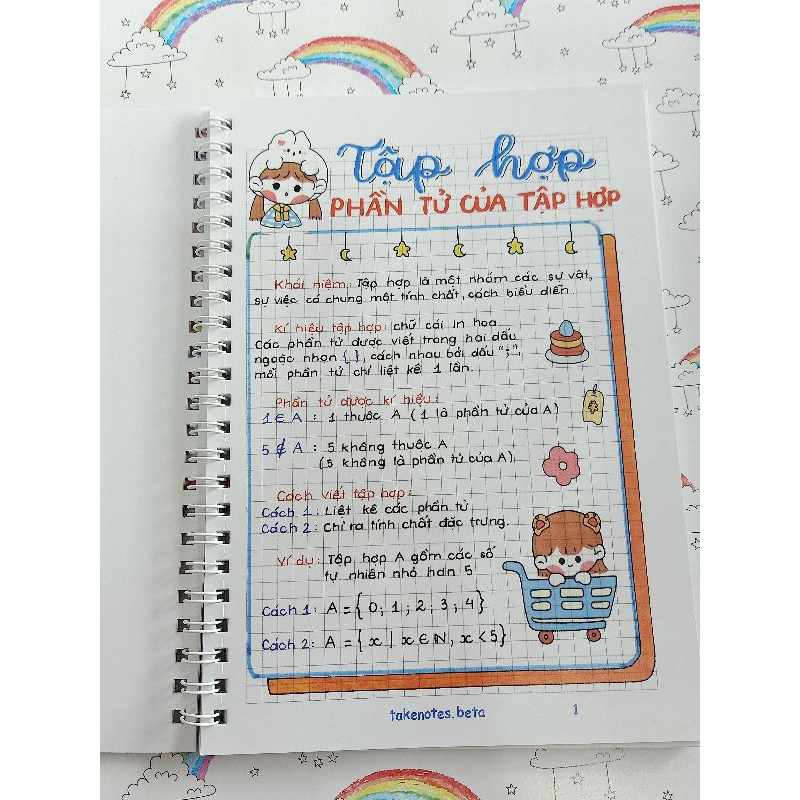 Tập hợp
PHẦN TỬ CỦA TẬP HỢP
Khái niệm: Tập hợp là một nhóm các sự vật,
sự việc có chung một tính chất, cách biểu diễn.
Kí hiệu tập hợp: chữ cái in hoa
Các phần tử được viết trong hai dấu
ngoặc nhọn { }, cách nhau bởi dấu ";",
mỗi phần tử chỉ liệt kê 1 lần.
Phần tử được kí hiệu:
1 ∈ A : 1 thuộc A (1 là phần tử của A)
5 ∉ A : 5 không thuộc A
(5 không là phần tử của A)
Cách viết tập hợp:
Cách 1: Liệt kê các phần tử
Cách 2: Chỉ ra tính chất đặc trưng.
Ví dụ: Tập hợp A gồm các số
tự nhiên nhỏ hơn 5
Cách 1: A = { 0; 1; 2; 3; 4 }
Cách 2: A = { x | x ∈ N, x < 5 }
takenotes.beta 1